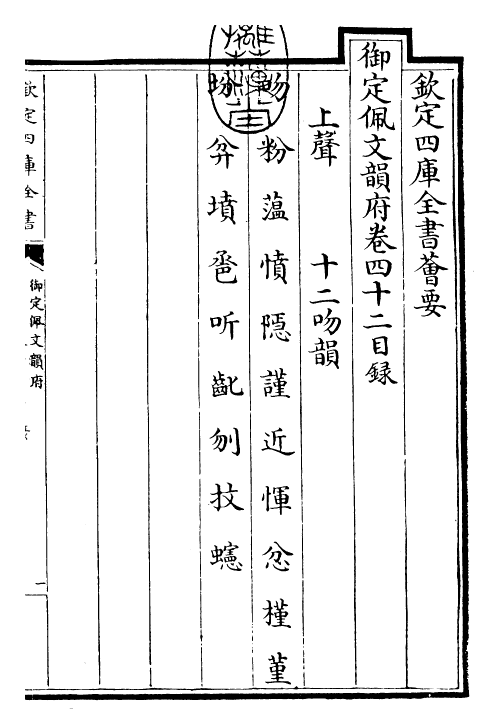 欽定四庫全書薈要
御定佩文韻府卷四十二目録
上聲 十二吻韻
吻粉藴憤隱謹近惲忿槿堇
坋弅墳巹听齔刎扙蟪
欽定四庫全書
御定佩文韻府
一